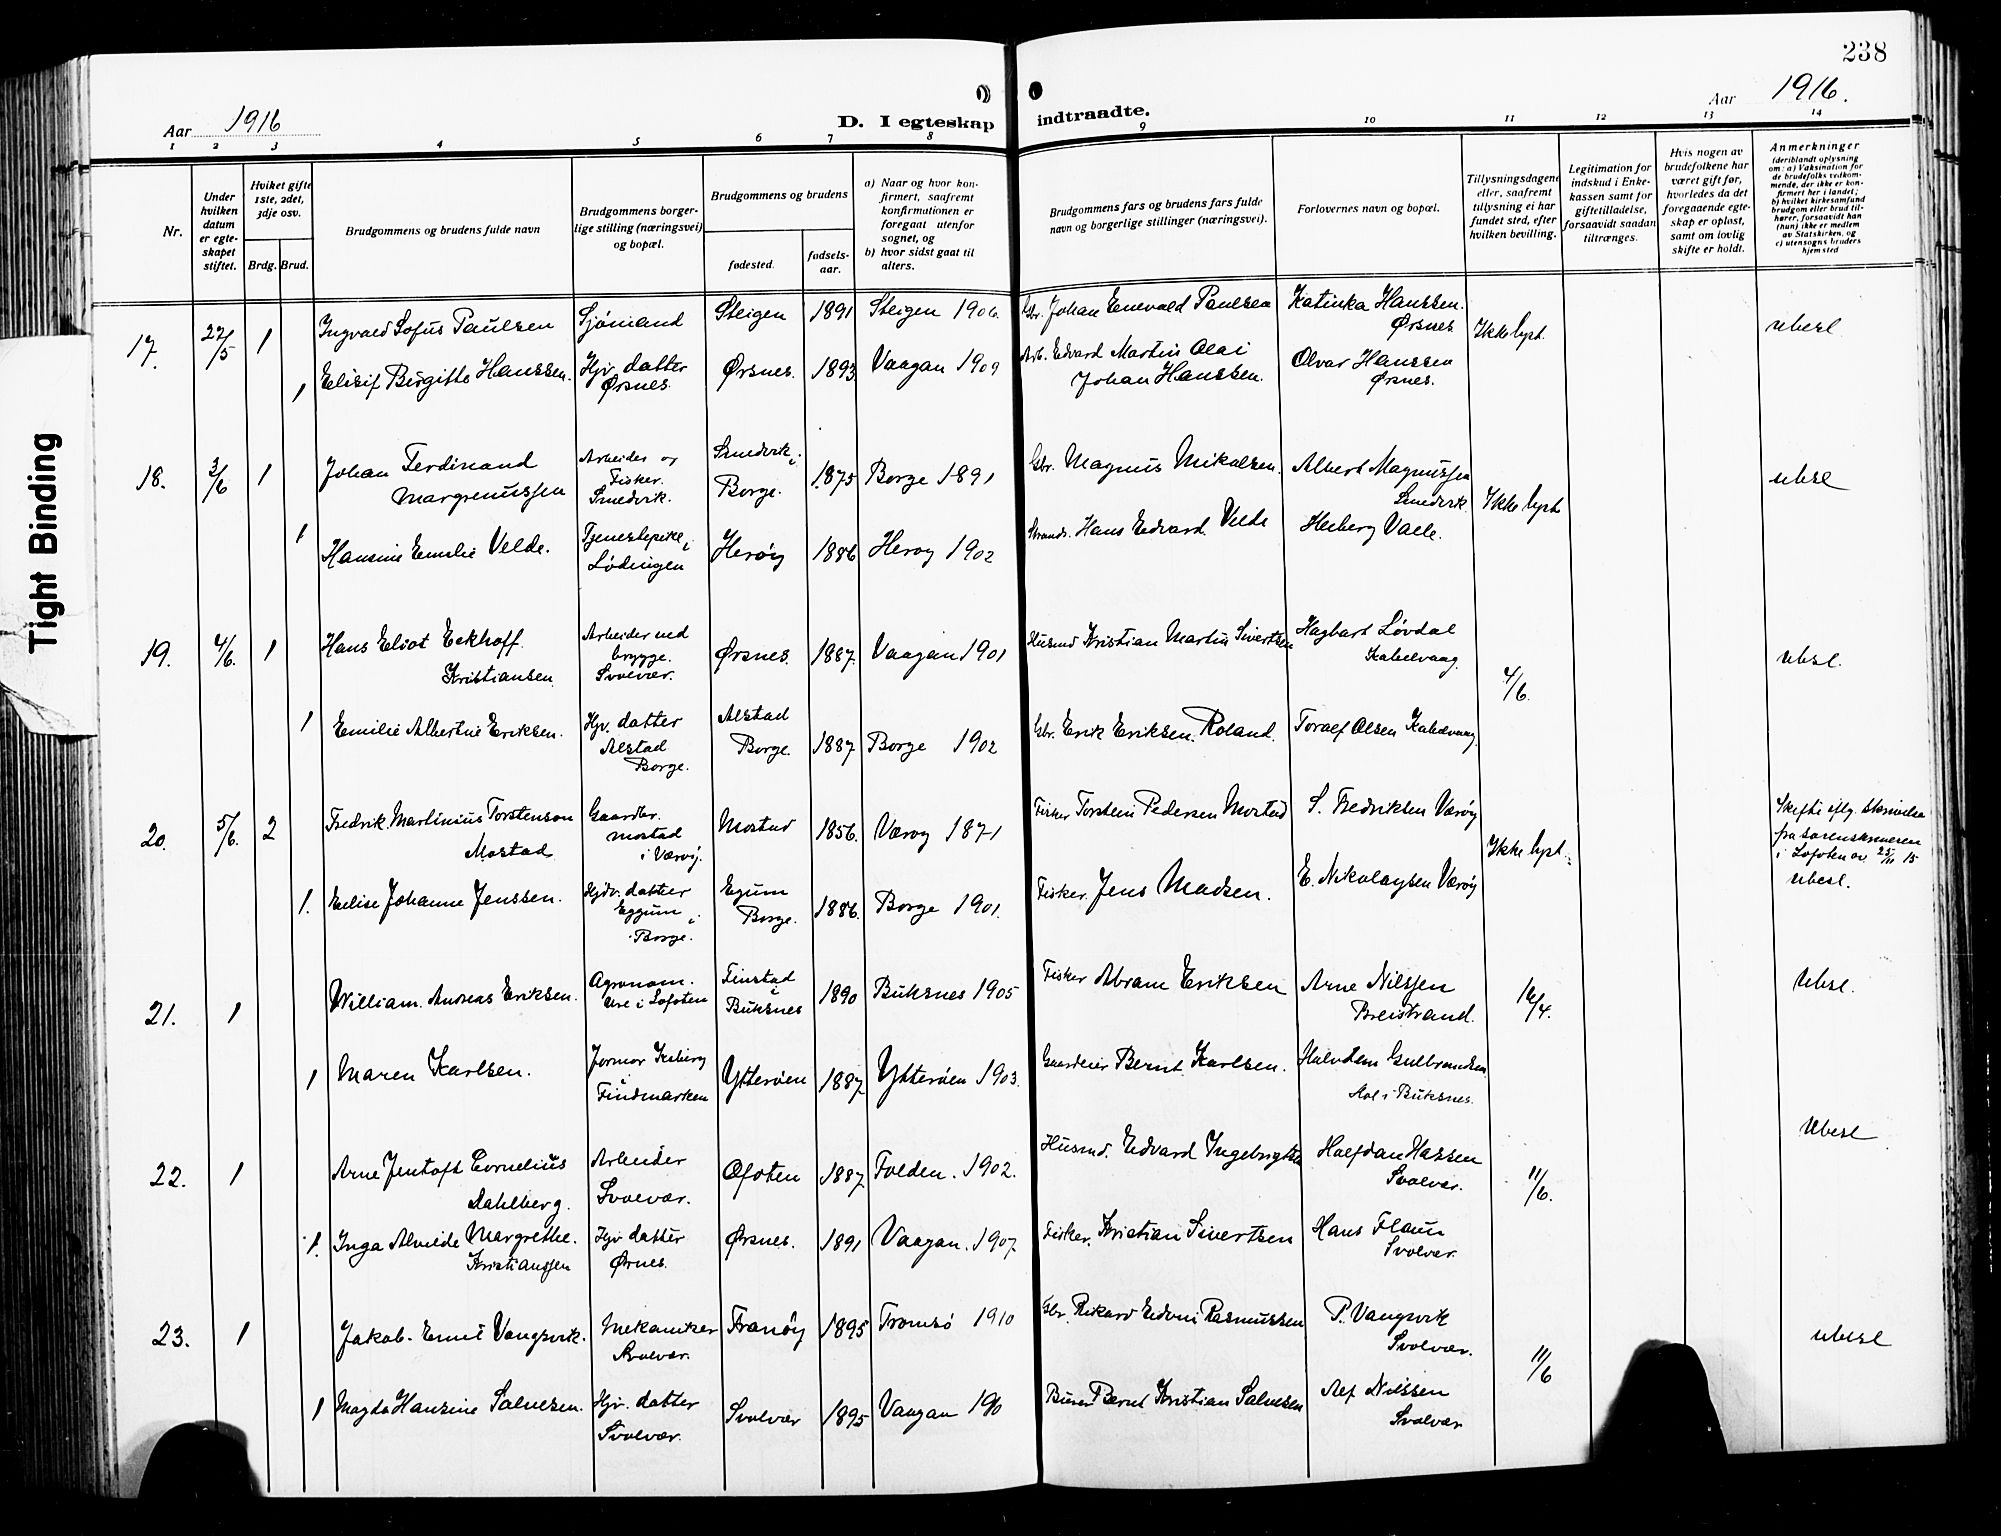 238
Aar 1916
D. I egteskap indtraadte.
Aar 1916.
1 2 3 4 5 6 7 8 9 10 11 12 13 14
Nr.
Under hvilken datum er egteskapet stiftet.
Hvilket gifte 1ste, 2det, 3dje osv.
Brdg. Brud.
Brudgommens og brudens fulde navn
Brudgommens borgerlige stilling (næringsvei) og bopæl.
Brudgommens og brudens
fødested.
fødselsaar.
a) Naar og hvor konfirmert, saafremt konfirmationen er foregaat utenfor sognet, og
b) hvor sidst gaat til alters.
Brudgommens fars og brudens fars fulde navn og borgerlige stillinger (næringsvei).
Forlovernes navn og bopæl.
Tillysningsdagene eller, saafremt tillysning ei har fundet sted, efter hvilken bevilling.
Legitimation for indskud i Enkekassen samt for giftetilladelse, forsaavidt saadan tiltrænges.
Hvis nogen av brudefolkene har været gift før, hvorledes da det foregaaende egteskap er opløst, samt om lovlig skifte er holdt.
Anmerkninger
(deriblandt oplysning om: a) Vaksination for de brudefolks vedkommende, der ikke er konfirmert her i landet; b) hvilket kirkesamfund brudgom eller brud tilhører, forsaavidt han (hun) ikke er medlem av Statskirken, og c) utensogns bruders hjemsted
17. 22/5 1 Ingvald Sofus Paulsen Sjømand Steigen 1891 Steigen 1906. Gbr. Johan Enevald Paulsen Katinka Hanssen. Ørsnes Ikke lyst. ubesl
1 Elisif Birgitte Hanssen. Hjv. datter Ørsnes. Ørsnes. 1893 Vaagan 1909 Arb. Edvard Martin Olai Johan Hanssen. Olvar Hanssen Ørsnes.
18. 3/6 1 Johan Ferdinand Margrenussen Arbeider og Fisker. Smedvik. Smedvik i Borge. 1875 Borge 1891 Gbr. Magnus Mikalsen. Albert Magnussen Smedvik. Ikke lyst ubesl
1 Hansine Emelie Velde. Tjenestepike, Lødingen Herøy 1886 Herøy 1902 Strands. Hans Edvard Velde Herberg Valle.
19. 4/6. 1 Hans Eliot Eckhoff Kristiansen. Arbeider ved brygge. Svolvær. Ørsnes. 1887. Vaagan 1901 Husmd Kristian Martin Sivertsen Hagbart Løvdal Kabelvaag. 4/6. ubesl.
1 Emilie Albertine Eriksen. Hjv. datter Alstad Borge. Alstad Borge. 1887 Borge 1902 Gbr. Erik Eriksen Roland. Toralf Olsen Kabelvaag.
20. 5/6. 2 Fredrik Martinius Torstenson Mostad Gaardbr. Mostad i Værøy. Mostad 1856. Værøy 1871 Fisker Torstein Pedersen Mostad S. Fredriksen Værøy Ikke lyst. Skifte eflg. skrivelse fra sorenskriveren i Lofoten av 25/11 15 ubesl.
1. Elise Johanne Jenssen. Hjdv. datter Eggum i Borge. Egum Borge. 1886. Borge 1901. Fisker. Jens Madsen. E. Nikolaysen Værøy
21. 1 William Andreas Eriksen. Agronom. Ure i Lofoten Finstad i Buksnes 1890 Buksnes 1905 Fisker Abram Eriksen Arne Nilssen Breistrand. 16/4. Ubesl.
1 Maren Karlsen. Jormor Kiberg i Findmarken Ytterøen 1887. Ytterøen 1903. Gaardeier Bernt Karlsen. Halvdan Gulbrandsen. Hol i Buksnes.
22. 1 Arne Jentoft Cornelius Dahlberg. Arbeider Svolvær. Ofoten 1887. Folden. 1902. Husmd. Edvard Ingebrigtsen Halfdan Hassen Svolvær. 11/6. Ubesl
1. Inga Alvilde Margrethe. Kristianssen Hjv datter Ørnes. Ørsnes. 1891 Vaagan. 1907. Fisker. Kristian Sivertsen Hans Flaun Svolvær.
23. 1 Jakob Emil Vangsvik. Mekaniker Svolvær. Tranøy 1895 Tromsø 1910 Gbr. Rikard Edvin Rasmussen P. Vangsvik Svolvær. 11/6 ubesl
1 Magda Hansine Salvesen. Hjv. datter Svolvær. Svolvær 1895 Vaagan Bernt Kristian Salvesen Alf Nilssen Svolvær
Tight Binding